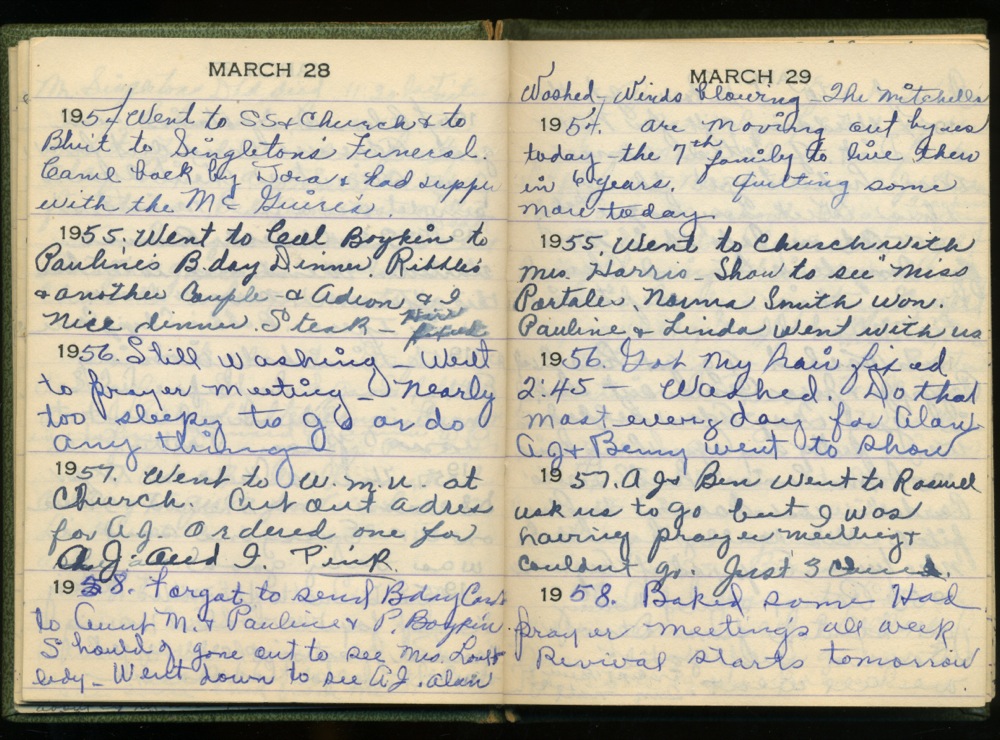 MARCH 28
1954 Went to SS & Church & to
Bluit to Singleton's Funeral.
Came back by Dora & had supper
with the Mc Guire's.
1955. Went to Ceal Boykin to
Pauline's B.day Dinner. Ribble's
& another Couple - & Adron & I
Nice dinner. Steak -
1956. Still washing - Went
to prayer meeting - Nearly
too sleepy to go or do
any thing
1957. Went to W.M.U. at
Church. Cut out a dress
for A.J. Ordered one for
A.J. and I. Pink.
1958. Forgot to send Bday Card
to Aunt M. & Pauline & P. Boykin.
Should of gone out to see Mrs.
lady - Went down to see A.J. Alan
MARCH 29
Washed, Winds blowing - The Mitchells
1954. are moving out by us
today - the 7th family to live there
in 6 years. Quilting some
more today.
1955. Went to Church with
Mrs. Harris - Show to see "Miss
Portales, Norma Smith won.
Pauline & Linda went with us
1956. Got my hair fixed
2:45 - Washed. Do that
most every day for Alan
AJ & Benny went to show
1957. AJ & Ben went to Roswell
ask us to go but I was
having prayer meeting &
couldn't go. Just 3
1958. Baked some Had
prayer meetings all week
Revival starts tomorrow